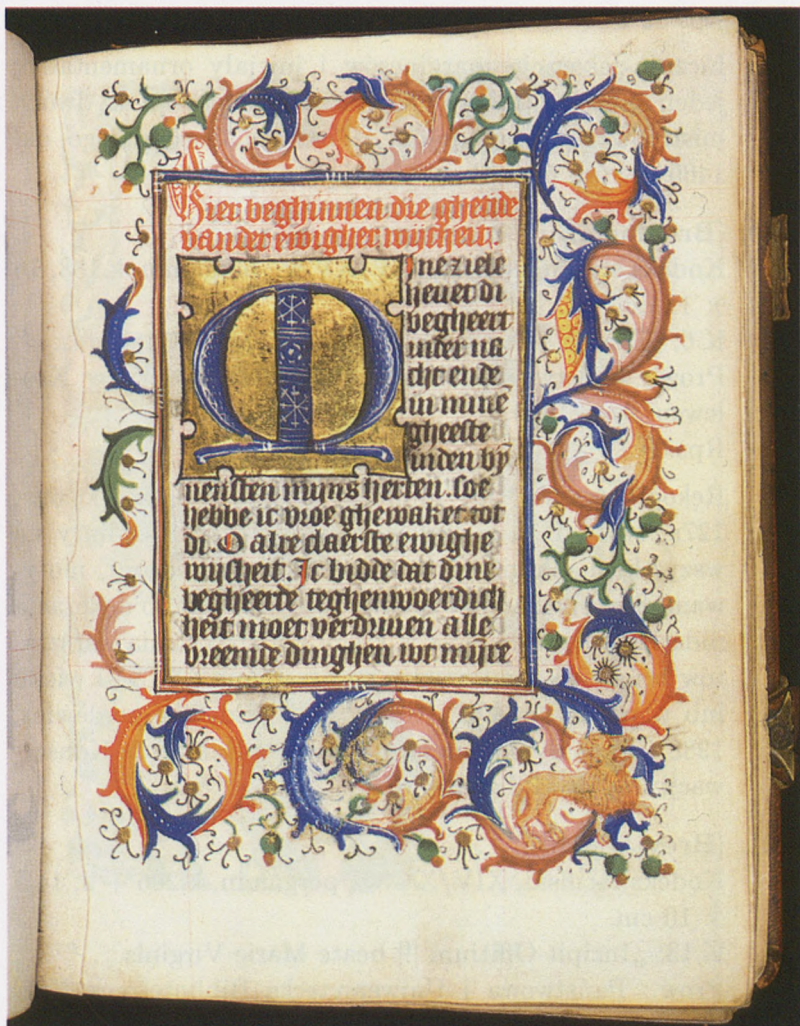 Hier beghinnen die ghetide
vander ewigher wijsheit.
Mine ziele
hevet di
begheert
inder na
cht ende
in minē
gheeste
inden bỹ
nensten mijns herten. soe
hebbe ic vroe ghewaket tot
di. O alre claerste ewighe
wijsheit. Ic bidde dat dine
begheerde teghenwoerdich
heit moet verdriuen alle
vreemde dinghen wt mijre